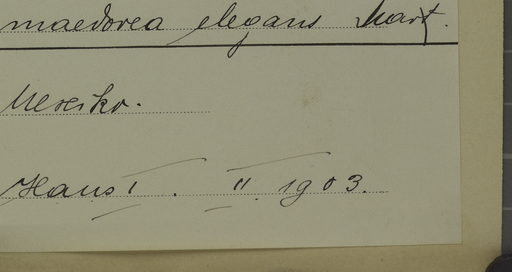 maedorea elegans Mart.
Mexiko.
Haus I. II. 1903.